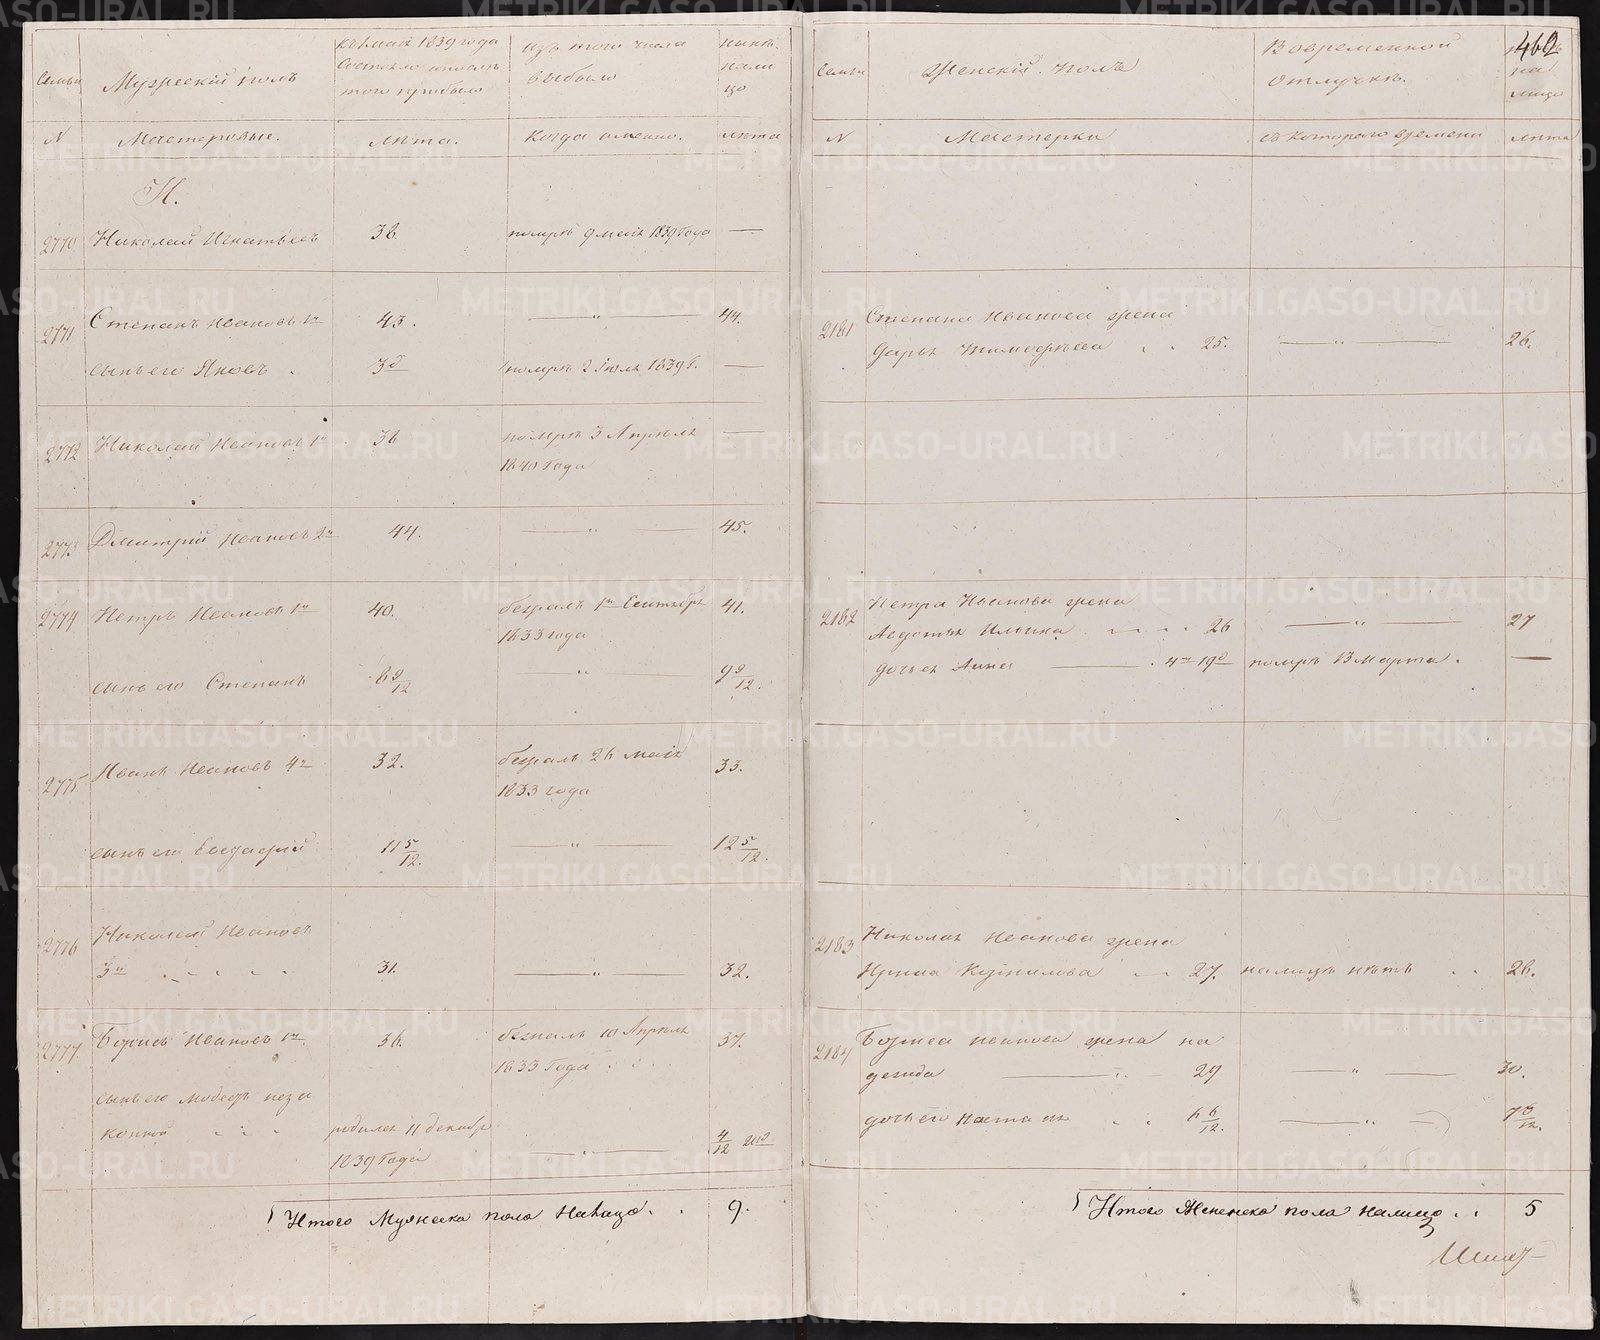 460
Семьи
Мужескій полъ
къ 1 мая 1839 года
состояло и после
того прибыло
изъ того числа
выбыло
нынѣ
нали
цо
N
Мастеровые.
лѣта.
когда именно.
лѣта
И.
2770 Николай Игнатьевъ 36 помръ 9 мая 1839 года —
2771 Степанъ Ивановъ 1й 43. — " — 44.
сынъ его Яковъ . 3д помръ 2 іюля 1839 г. —
2772 Николай Ивановъ 1й 36 помръ 3 Апрѣля —
1840 года
2773 Дмитрій Ивановъ 2й 44. — " — 45.
2774 Петръ Ивановъ 1й 40. бежалъ 1го Сентября 41.
1833 года
сынъ его Степанъ 8 9/12 — " — 9 9/12.
2775 Иванъ Ивановъ 4й 32. бежалъ 26 мая 33.
1833 года
сынъ его 11 5/12. — " — 12 5/12.
2776 Николай Ивановъ
3й 31. — " — 32.
2777 Борисъ Ивановъ 1й 36. бежалъ 10 Апрѣля 37.
1833 года
сынъ его незa
конной родился 11 декабр
1839 года — " — 4/12
Итого Мужеска пола Налицо . . 9.
Семьи
Женскій полъ
Во временной
отлучкѣ.
на
лицо
N
Мастерки
съ котораго времени
лѣта
2181 Степана Иванова жена
Дарья Тимофѣева . . 25. — " — 26.
2182 Петра Иванова жена
Авдотья Ильина 26 — " — 27
дочь ея Анна — . помръ 13 марта . —
2183 Николая Иванова жена
Ирина 27. налицъ нѣтъ . . 28.
2184 Бориса Иванова жена На
дежда — " — 29 — " — 30.
дочь его Наталья . . 6 6/12. — " — 7 6/12.
Итого Женска пола налицо . . 5
METRIKI.GASO-URAL.RU